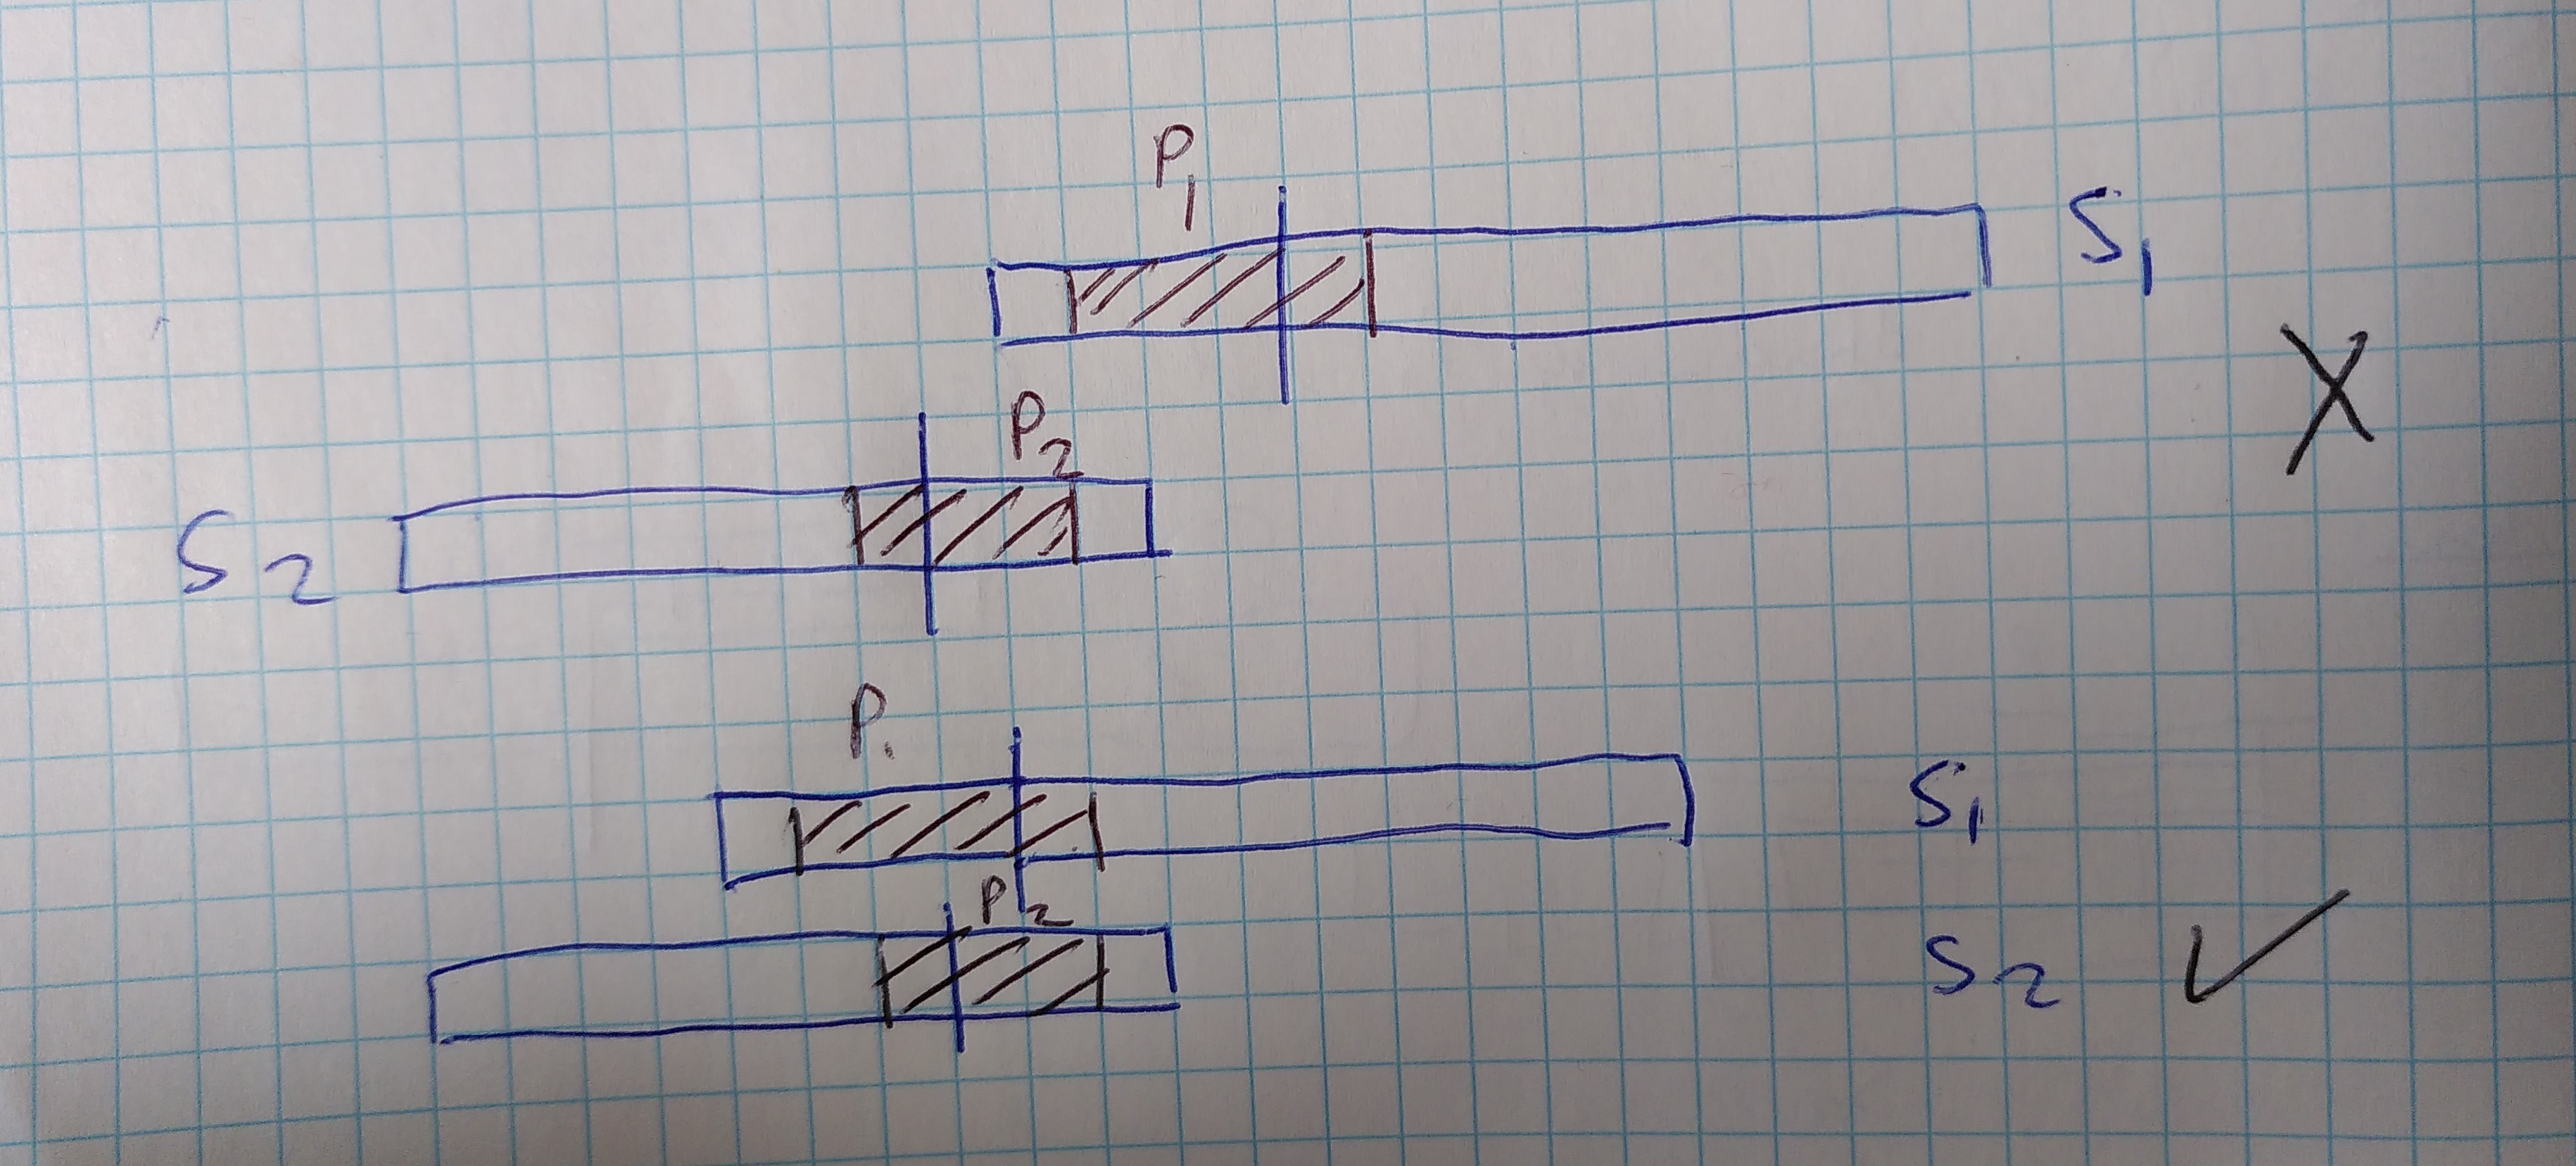 P1
S1
X
P2
S2
P1
S1
P2
S2 ✓